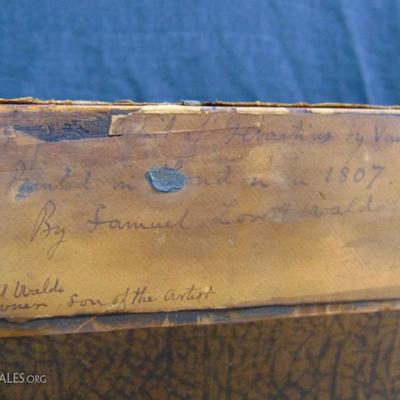 of Erasmus by Van
Painted in London in 1807.
By Samuel Lovett Waldo
Waldo
owner son of the artist
ALES.ORG